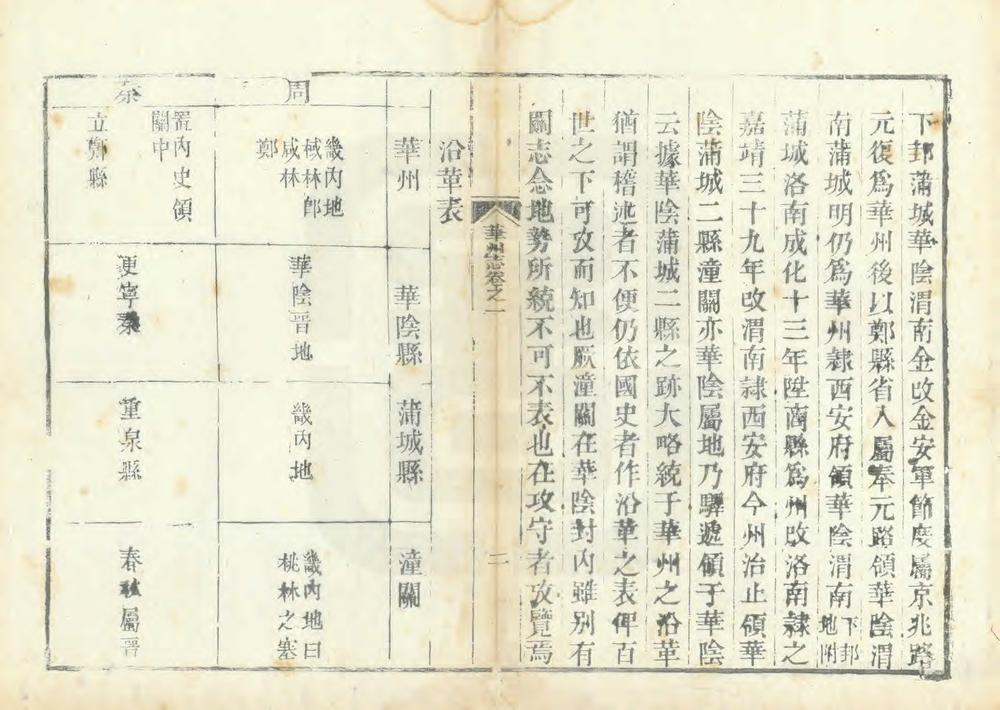 下邽蒲城華陰渭南金改金安軍節度屬京兆路
元復爲華州後以鄭縣省入屬奉元路領華陰渭
南蒲城明仍爲華州隸西安府領華陰渭南下邽地附
蒲城洛南成化十三年陞商縣爲州改洛南隸之
嘉靖三十九年改渭南隸西安府今州治止領華
陰蒲城二縣潼關亦華陰屬地乃驛遞領于華陰
云據華陰蒲城二縣之跡大略統于華州之沿革
猶謂稽述者不便仍依國史者作沿革之表俾百
世之下可攷而知也厥潼關在華陰封內雖別有
關志念地勢所統不可不表也在攻守者攷覽焉
華州志卷之一
二
沿革表
華州
華陰縣
蒲城縣
潼關
周
畿內地
棫林卽
咸林
鄭
華陰晉地
畿內地
畿內地曰
桃林之塞
秦
置內史領
關中
立鄭縣
更寧秦
重泉縣
春秋屬晉